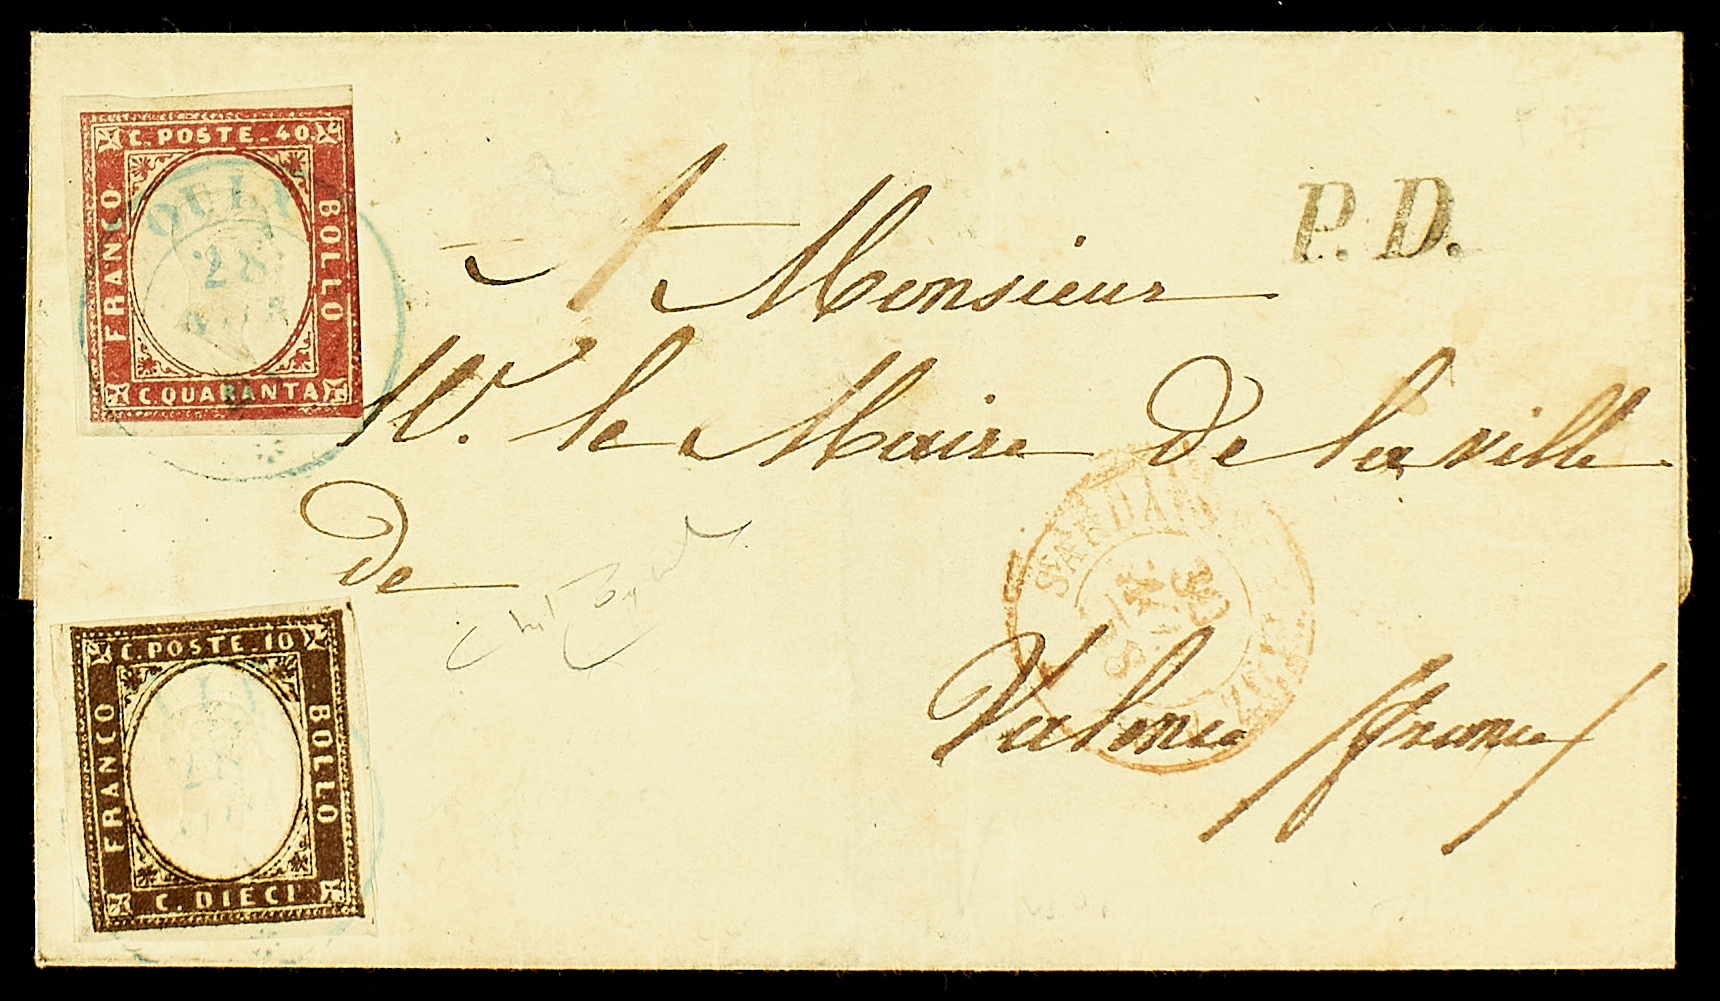 C. POSTE. 40.
FRANCO
BOLLO
C. QUARANTA
OULX
28
P. D.
A Monsieur
M. le Maire de la ville
de
Valence /france/
C. POSTE. 10
FRANCO
BOLLO
C. DIECI